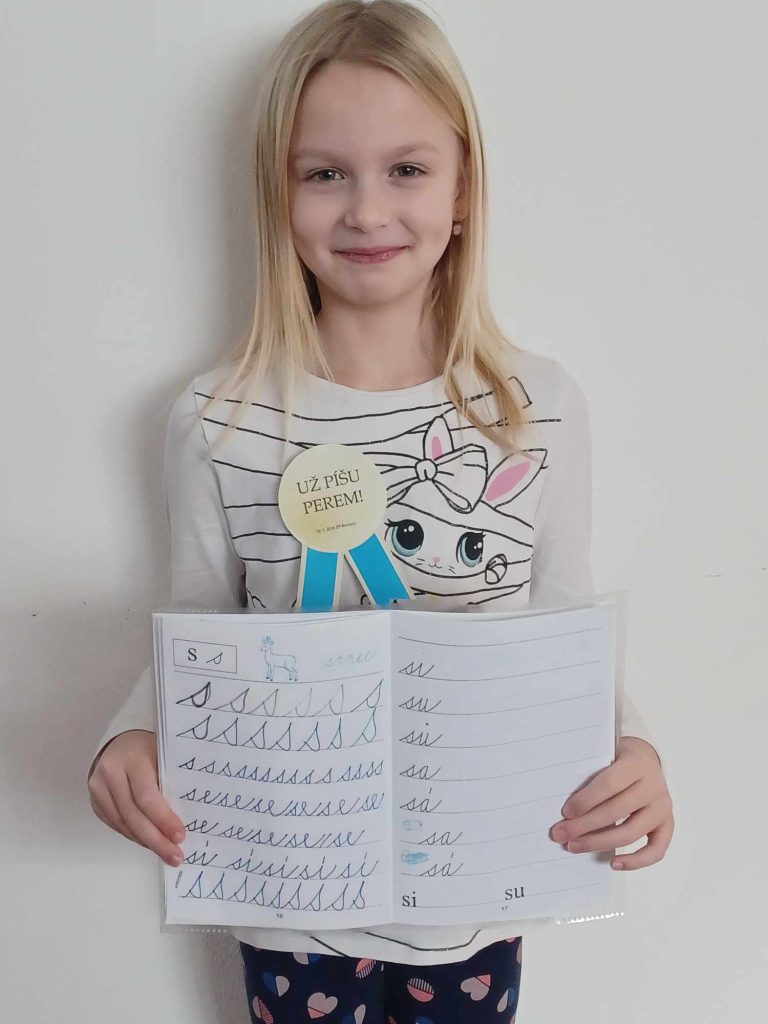 UŽ PÍŠU
PEREM!
s s srnec
s s s s s s
s s s s s s s
s s s s s s s s s s s s s
se se se se se se
se se se se se
si si si si si
s s s s s s s s
16
si
su
sú
sa
sá
sa
sá
si su
17